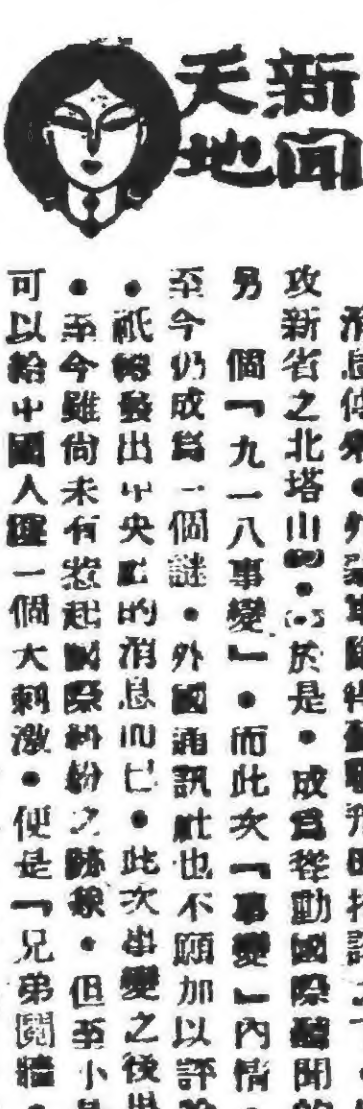 新聞
天地
消息傳來。外蒙軍隊
攻新省之北塔山。於是。成為轟動國際醜聞的
另一個「九一八事變」。而此次「事變」內情
至今仍成爲一個謎。外國通訊社也不願加以評
。祇轉發出中央社的消息而已。此次事變之後
。至今雖尚未有惹起國際糾紛之跡象。但至小是
可以給中國人民一個大刺激。便是「兄弟鬩牆。